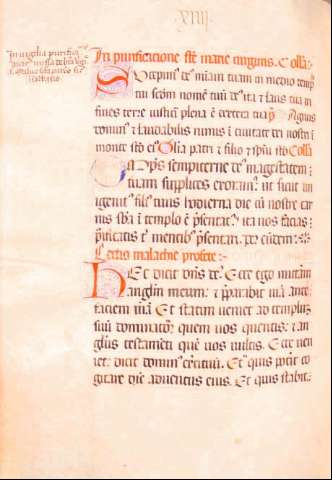 xviij
In purificatione ste marie uirginis. Colla
Suscepimus ds miam tuam in medio templi
tui scdm nomē tuū ds ita & laus tua in
fines terre iustitia plena ē dextera tua ps Magnus
dominus & laudabilis nimis in ciuitate dei nostri in
monte sto eius Glia patri & filio & spui sto Colla
Omps sempiterne ds magestatem
tuam supplices exoramus ut sicut un
igenitus filius tuus hodierna die cū nostre car
nis sba in templo ē psentatus ita nos facias
purificatis tibi mentibus psentari. per eundem
Lectio malachie profete
Hec dicit dns ds. Ecce ego mittam
angelum meum & preparabit uiā ante
faciem meā Et statim ueniet ad templum
suū dominator quem uos queritis & an
gelus testamēti quē uos uultis. Ecce ueni
et dicit dominus exercituū. Et quis poterit co
gitare diē aduentus eius. Et quis stabit